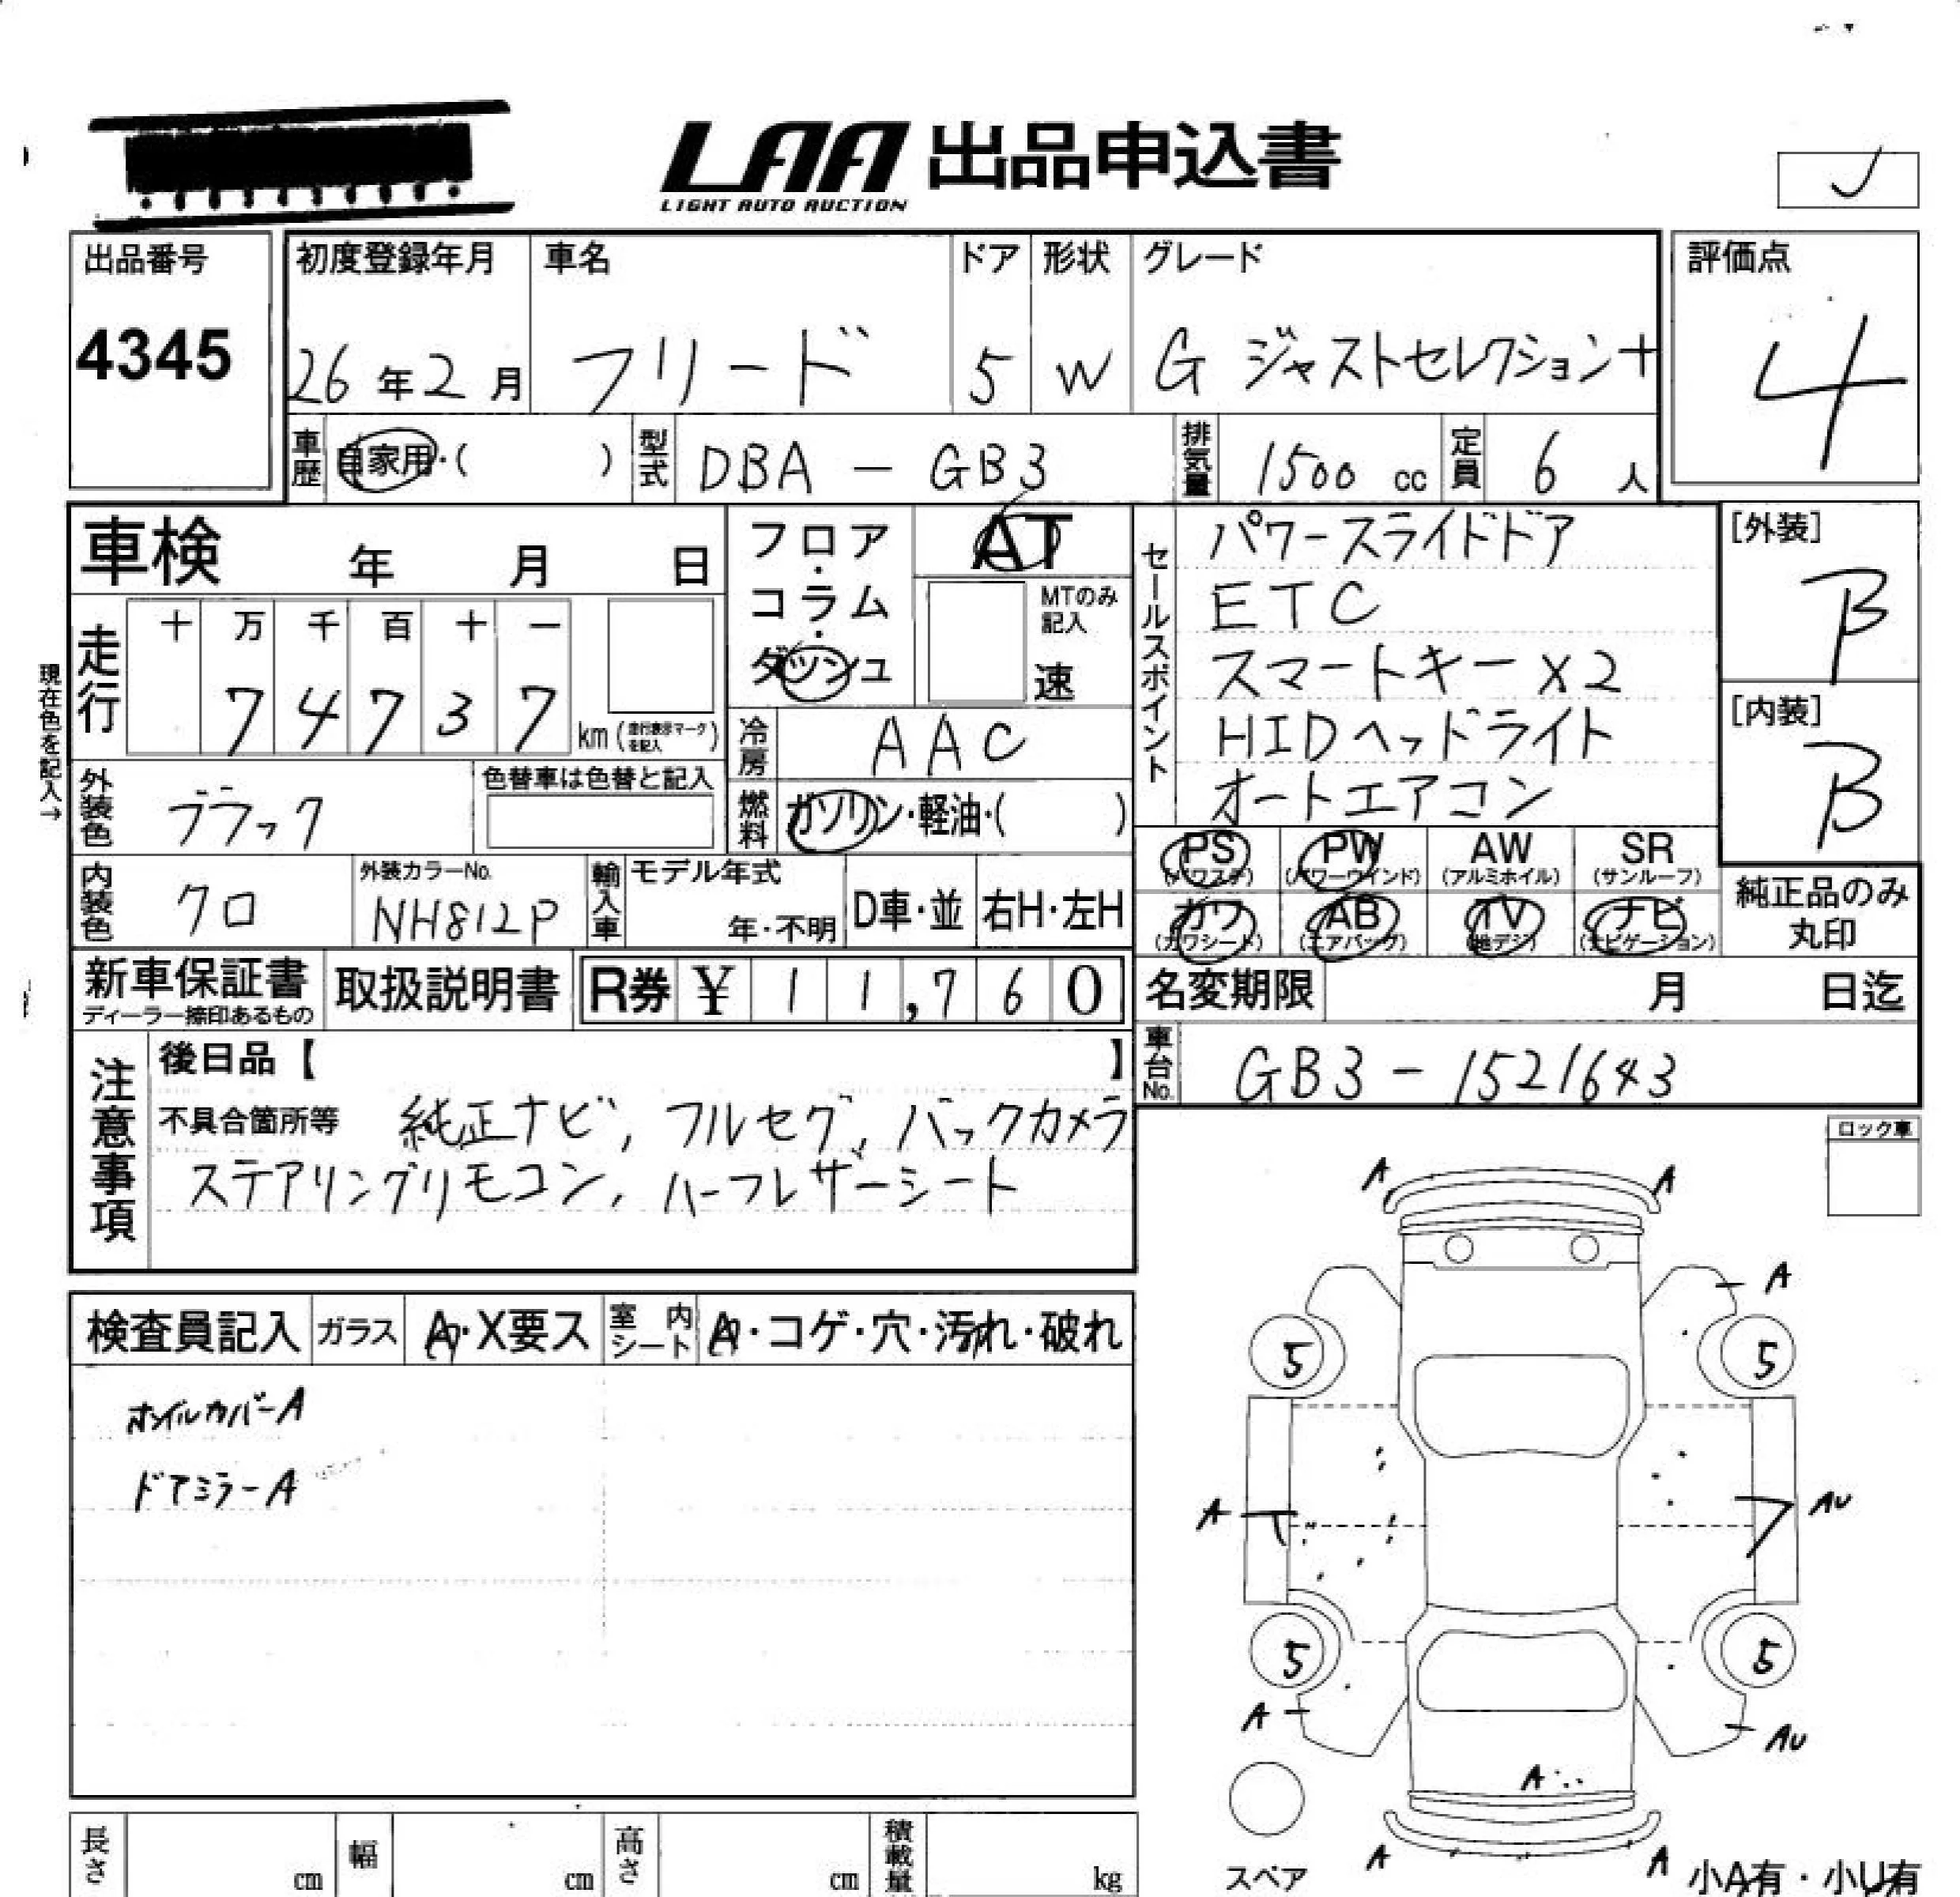 LAA 出品申込書
LIGHT AUTO AUCTION
出品番号
4345
初度登録年月
26年2月
車名
フリード
ドア
5
形状
W
グレード
G ジャストセレクション+
評価点
4
車歴
自家用・( )
型式
DBA - GB3
排気量
1500 cc
定員
6 人
車検 年 月 日
フロア・コラム・ダッシュ
AT
MTのみ記入
速
セールスポイント
パワースライドドア
ETC
スマートキー×2
HIDヘッドライト
オートエアコン
[外装]
B
[内装]
B
現在色を記入→
走行
十 万 千 百 十 一
7 4 7 3 7
km (走行表示マークを記入)
冷房
AAC
外装色
ブラック
色替車は色替と記入
燃料
ガソリン・軽油・( )
PS AW SR
PW
(パワステ) (パワーウインド) (アルミホイル) (サンルーフ)
カワ AB TV ナビ
(カワシート) (エアバッグ) (地デジ) (ナビゲーション)
純正品のみ
丸印
内装色
クロ
外装カラーNo.
NH812P
輸入車
モデル年式
年・不明
D車・並
右H・左H
新車保証書
ディーラー捺印あるもの
取扱説明書
R券 ¥ 1 1,7 6 0
名変期限 月 日迄
車台No.
GB3 - 1521643
注意事項
後日品【 】
不具合箇所等 純正ナビ, フルセグ, バックカメラ
ステアリングリモコン, ハーフレザーシート
ロック車
検査員記入
ガラス
A・X要ス
室内シート
A・コゲ・穴・汚れ・破れ
ホイルカバーA
ドアミラーA
A A
A
5 5
A AU
5 5
A AU
A
A A
スペア
小A有・小U有
長さ cm
幅 cm
高さ cm
積載量 kg